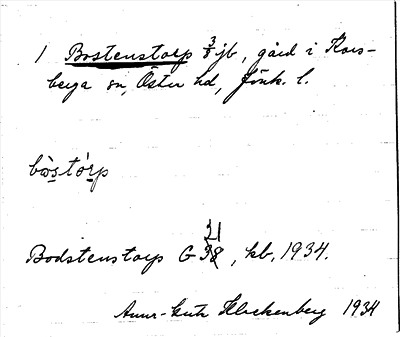 1 Bostenstorp 3/8 jb, gård i Kors-
berga sn, Öster hd, Jönk. l.
bòstórp
21
Bodstenstorp G 38, kb, 1934.
Anna-Greta Hackenberg 1934